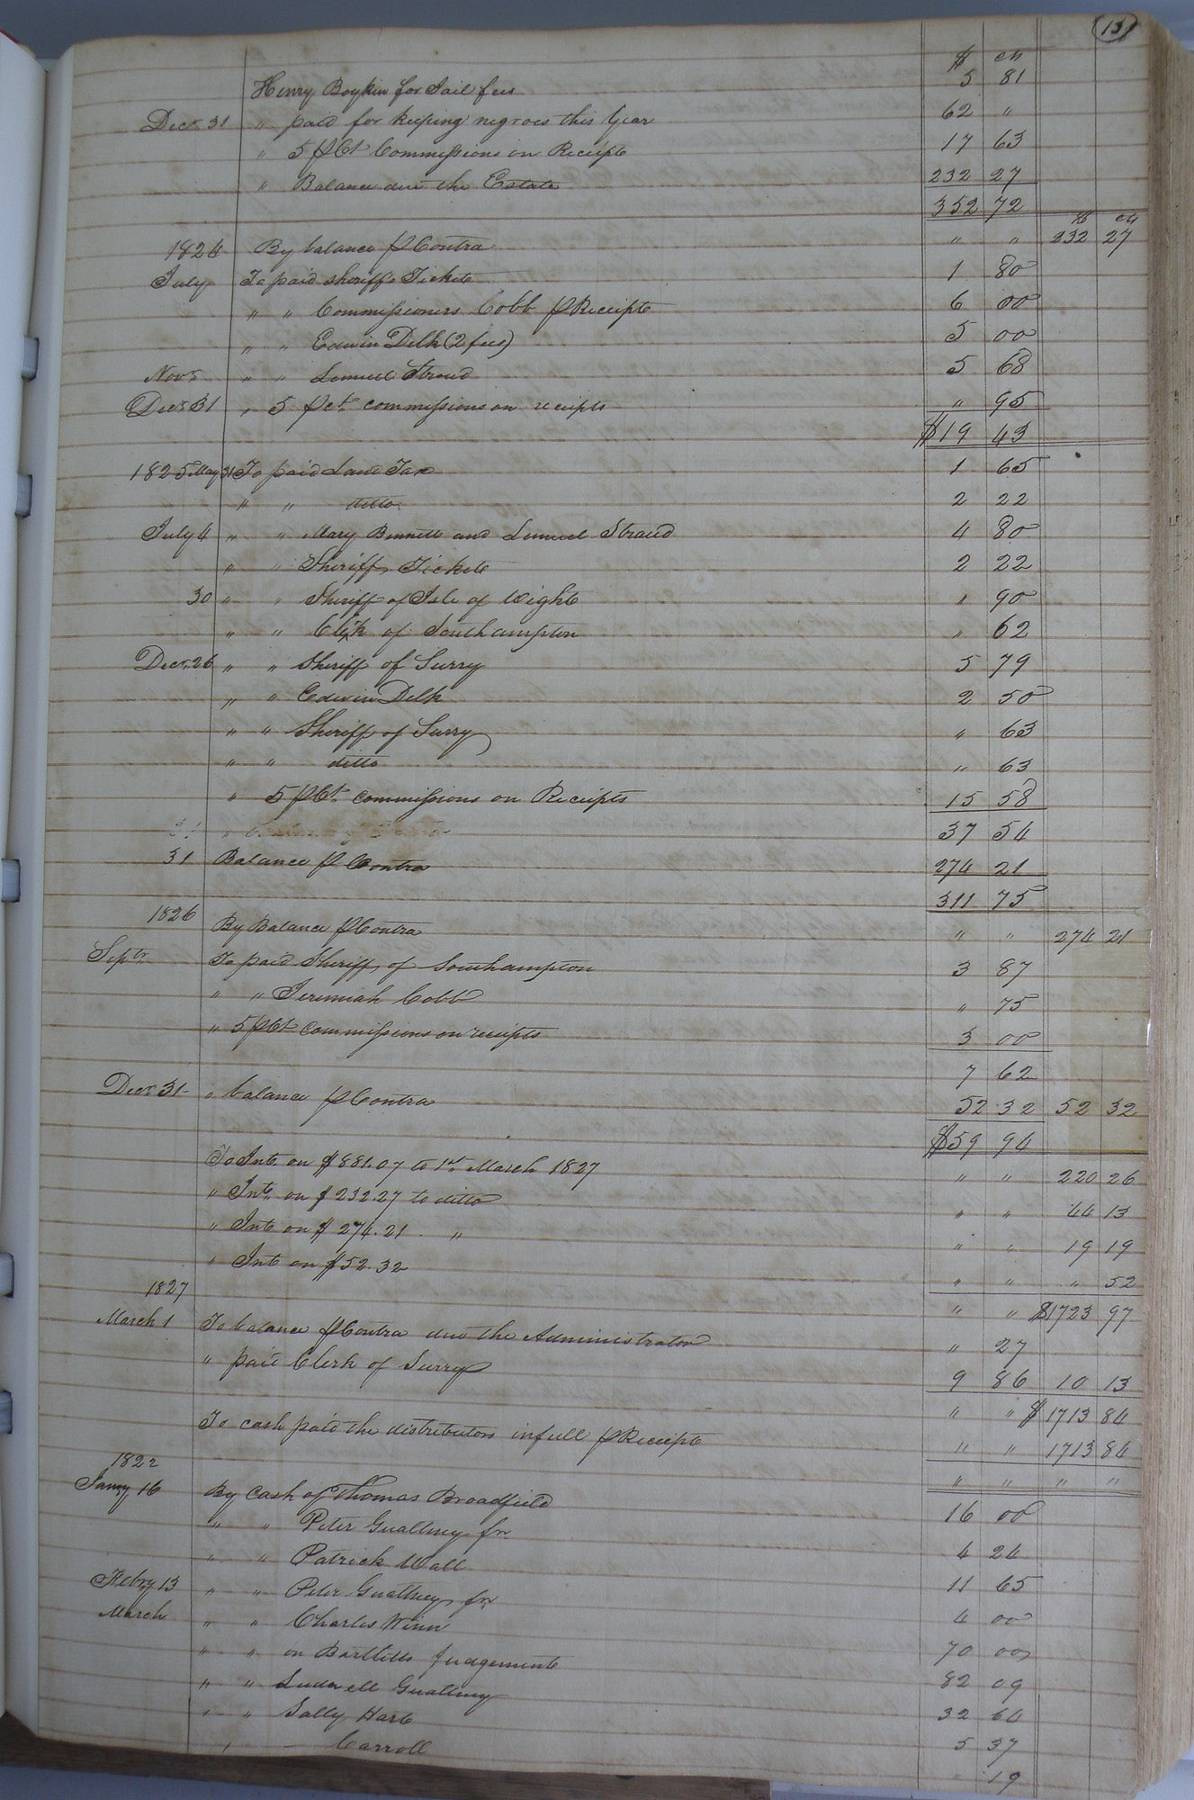 13
$ cts
Henry Boykin for Jail fees 5 81
Decr. 31 " paid for keeping negroes this Year 62 "
" 5 pCt Commissions on Receipts 17 63
" Balance due the Estate 232 27
352 72 $ cts
1824 By balance p Contra " " 232 27
July To paid sheriffs Tickets 1 80
" " Commissioners Cobb p Receipts 6 00
" " Edwin Delk (2 fees) 5 00
Novr " " Lemuel Stroud 5 68
Decr 31 " 5 pct commissions on receipts " 95
$19 43
1825 May 31 To paid Land Tax 1 65
" " ditto 2 22
July 4 " " Mary Bennett and Lemuel Stroud 4 80
" " Sheriffs Tickets 2 22
30 " " Sheriff of Isle of Wight " 90
" " Clk of Southampton " 62
Decr. 26 " " Sheriff of Surry 5 79
" " Edwin Delk 2 50
" " Sheriff of Surry " 63
" " ditto " 63
" 5 pCt. commissions on Receipts 15 58
37 54
31 Balance p Contra 274 21
311 75
1826 By Balance p Contra " " 274 21
Septr To paid Sheriff of Southampton 3 87
" " Jeremiah Cobb " 75
" 5 pCt commissions on receipts 3 00
7 62
Decr 31 " balance p Contra 52 32 52 32
$59 94
To Int. on $881.07 to 1st March 1827 " " 220 26
" Int. on $232.27 to ditto " " 44 13
" Int on $274.21 " " " 19 19
" Int on $52.32 " " " 52
1827 " " $1723 97
March 1 To balance p Contra due the Administrator " 27
" paid Clerk of Surry 9 86 10 13
" " $1713 84
To cash paid the distributors in full p Receipts " " 1713 84
" " " "
1822
Janry 16 By Cash of Thomas Broadfield 16 00
" " Peter Gwaltney Jr. 4 24
" " Patrick Wall 11 65
Febry 13 " " Peter Gwaltney Jr 4 00
March " " Charles Winn 70 00
" " on Bartletts Judgement 82 09
" " Ludwell Gwaltney 32 64
" " Sally Hart 5 37
" Carroll 19